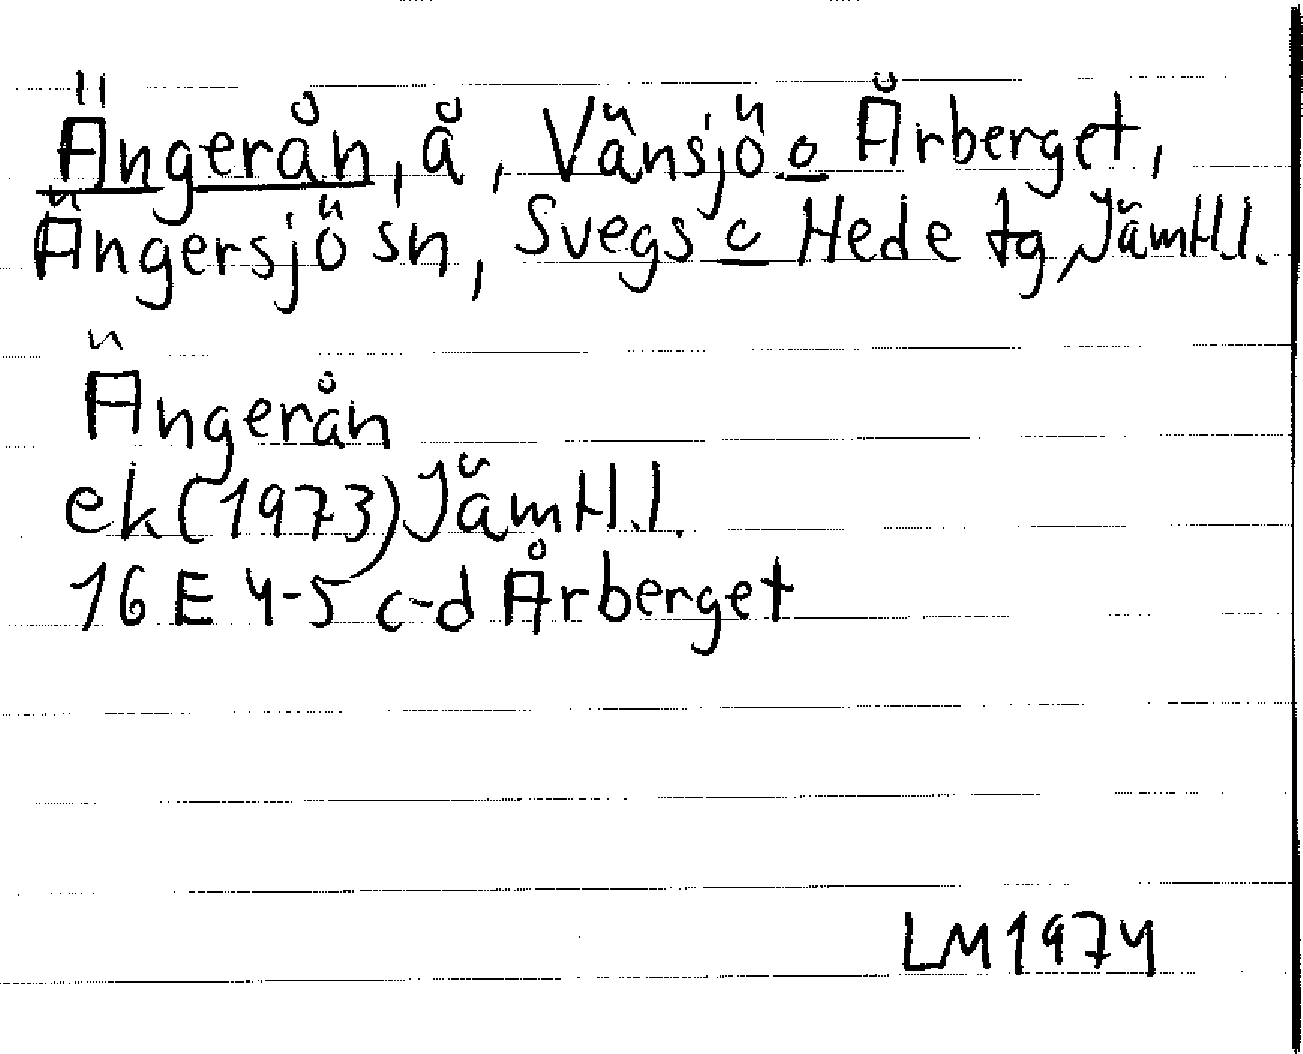 Ängerån, å, Vänsjö o Årberget,
Ängersjö sn, Svegs o Hede tg, Jämtl.l.
Ängerån
ek (1973) Jämtl.l.
16 E 4-5 c-d Årberget
LM 1974